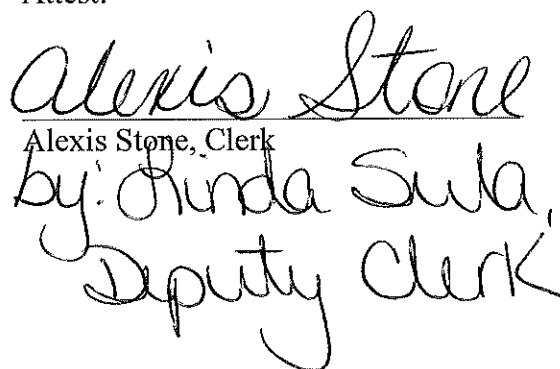 Attest:
Alexis Stone
Alexis Stone, Clerk
by: Linda Sula,
Deputy Clerk